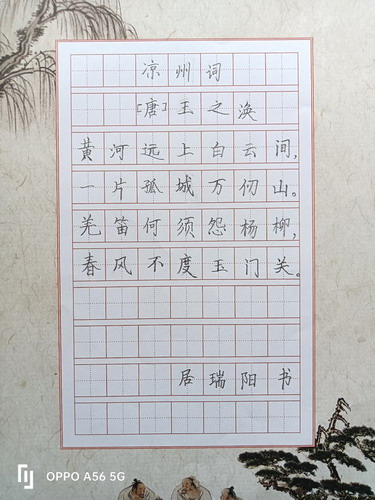 凉州词
[唐]王之涣
黄河远上白云间,
一片孤城万仞山。
羌笛何须怨杨柳,
春风不度玉门关。
居瑞阳书
OPPO A56 5G